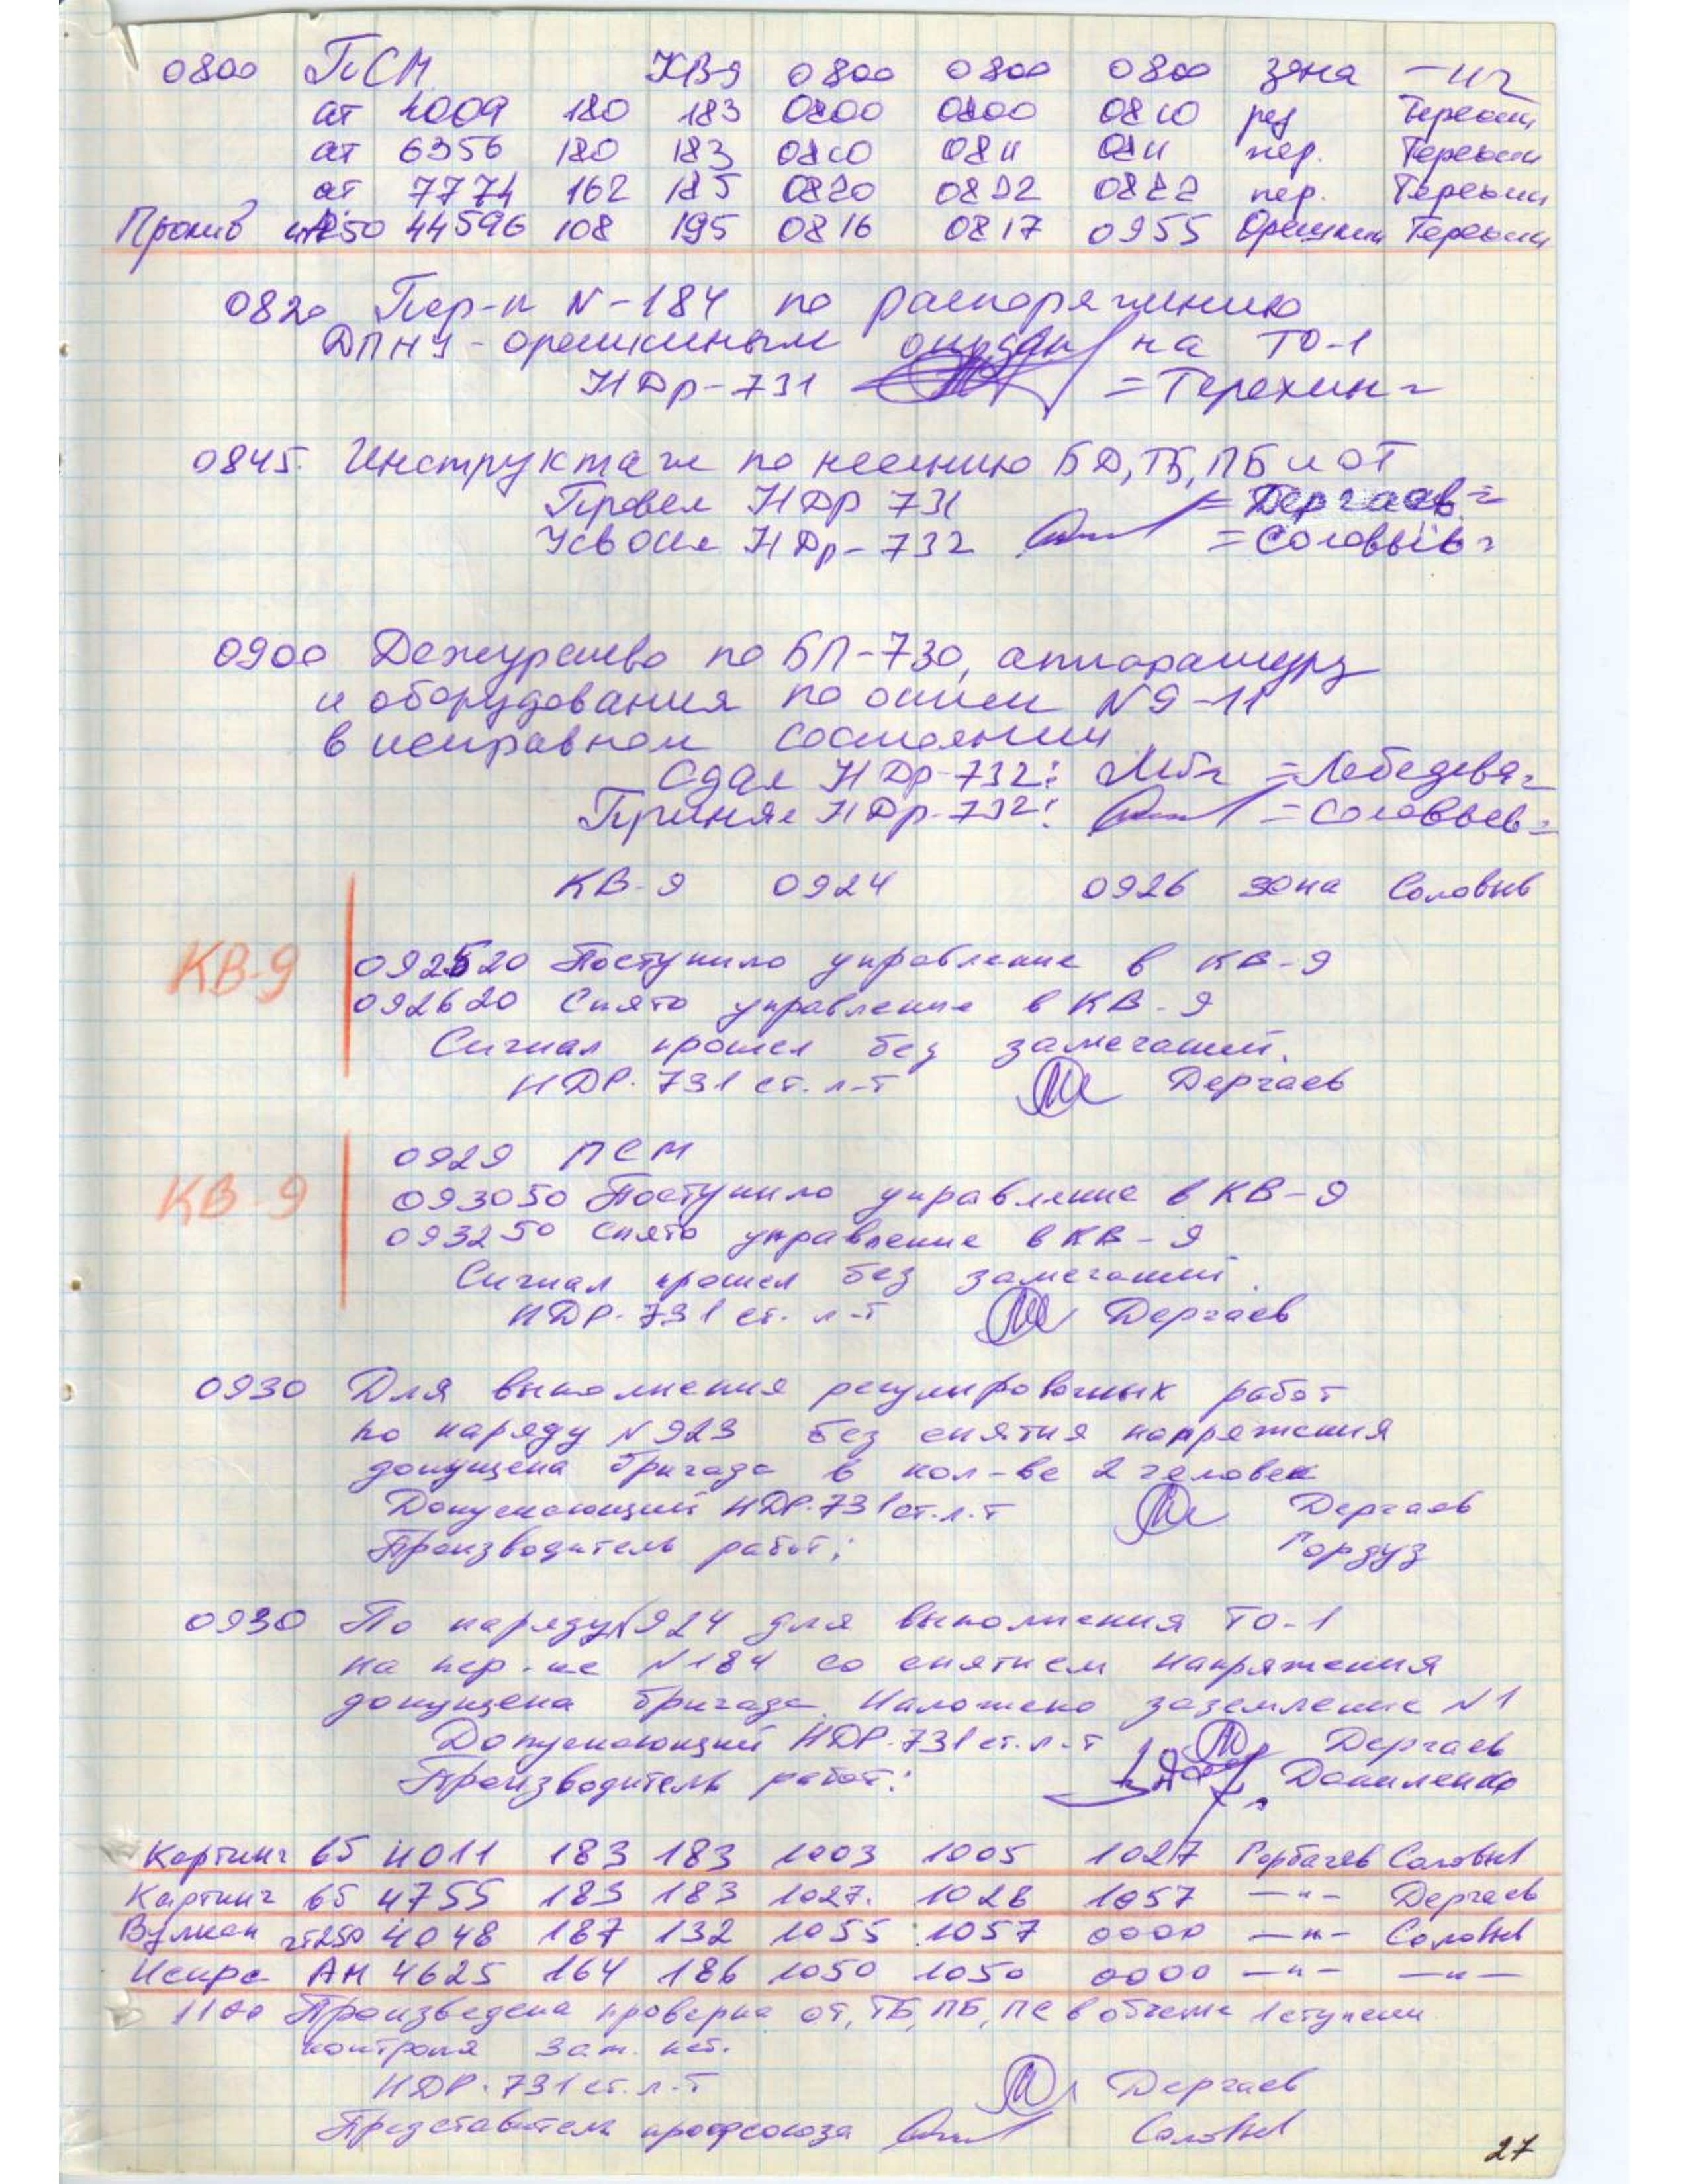 0800 ПСМ КВ9 0800 0800 0800 зона —"—
ат 4009 180 183 0800 0800 0810 рез Терехин
ат 6356 180 183 0810 0811 0811 пер. Терехин
ат 7774 162 185 0820 0822 0822 пер. Терехин
44596 108 195 0816 0817 0955 Орешкин Терехин
0820 Пер-к N-184 по распоряжению
ДПНУ - орешкиным на ТО-1
НДр-731 =Терехин=
0845. Инструктаж по несению БД, ТБ, ПБ и ОТ
Провел НДр 731 =Дергаев=
Усвоил НДр-732 =Соловьёв=
0900 Дежурство по БП-730, аппаратуру
и оборудования по описи N9-11
в исправном состоянии
Сдал НДр-732: =Лебедева=
Принял НДр-732: =Соловьев=
КВ-9 0924 0926 зона Соловьев
КВ-9
092520 Поступило управление в КВ-9
092620 Снято управление в КВ-9
Сигнал прошел без замечаний.
НДР.731 ст.л-т Дергаев
КВ-9
0929 ПСМ
093050 Поступило управление в КВ-9
093250 Снято управление в КВ-9
Сигнал прошел без замечаний.
НДР.731 ст. л-т Дергаев
0930 Для выполнения регулировочных работ
по наряду N923 без снятия напряжения
допущена бригада в кол-ве 2 человек
Допускающий НДР.731 ст.л.т Дергаев
Производитель работ:
0930 По наряду N924 для выполнения ТО-1
на пер-ке N184 со снятием напряжения
допущена бригада. Наложено заземление N1
Допускающий НДР.731 ст.л-т Дергаев
Производитель работ: Даниленко
Картинг 65 4011 183 183 1003 1005 1027 Горбачев Соловьев
Картинг 65 4755 183 183 1027. 1028 1057 —"— Дергаев
Вулкан 4048 187 132 1055 1057 0000 —"— Соловьев
АН 4625 164 186 1050 1050 0000 —"— —"—
1100 Произведена проверка ОТ, ТБ, ПБ, ПС в объеме 1 ступени
контроля зам. нет.
НДР.731 ст.л-т Дергаев
Представитель профсоюза Соловьев
27